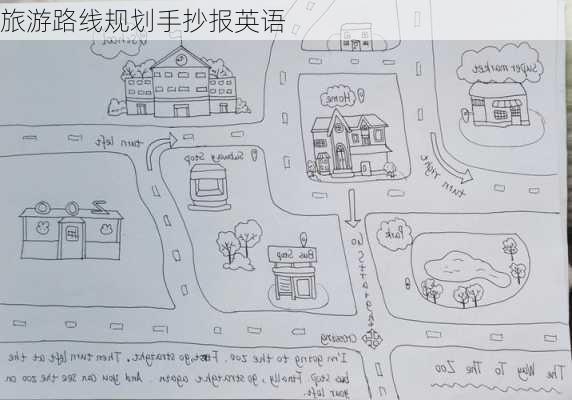 旅游路线规划手抄报英语
School
Super market
Home
turn left
Subway Stop
turn right
ZOO
Bus Stop
Go Straight
Park
Crossing
The Way To The Zoo
I'm going to the zoo. First, go straight. Then turn left at the
bus stop. Finally, go straight again. And you can see the zoo on
your left.